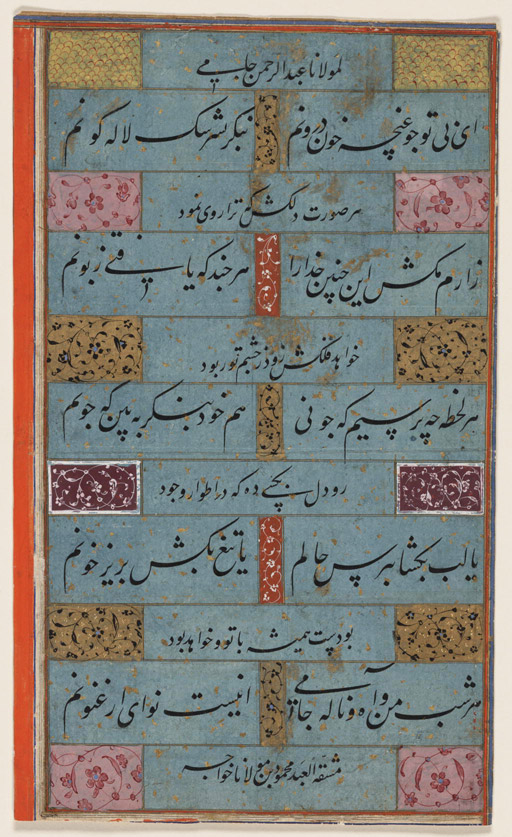 لمولانا عبد الرحمن جامی
ای بی تو چو غنچه خون درونم بنگر سرشک لاله گونم
هر صورت دلکش که ترا روی نمود
زارم مکش این چنین خدارا هر چند که یافتی زبونم
خواهد فلکش زود ز چشم تو ربود
هر لحظه چه پرسیم که چونی هم خود بنگر ببین که چونم
رو دل بکسی ده که در اطوار وجود
یا لب بگشا بپرس حالم یا تیغ بکش بریز خونم
بودست همیشه با تو و خواهد بود
هر شب من و آه و ناله جامی اینست نوای ارغنونم
مشقه العبد محمود بن مولانا خواجه